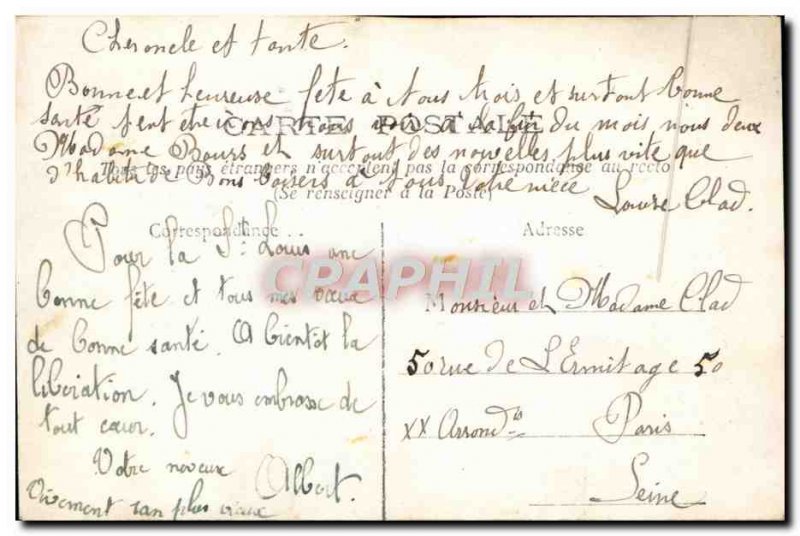 Cher oncle et tante.
Bonne et heureuse fete à tous trois et surtout bonne
santé
CARTE POSTALE
a la fin du mois nous deux
Madame Bours et surtout des nouvelles plus vite que
Tous les pays étrangers n'acceptent pas la correspondance au recto
d'habitude Bons baisers à tous Votre niece
(Se renseigner à la Poste)
Louise Clad.
Correspondance
Pour la St Louis une
bonne fête et tous mes vœux
de bonne santé. A bientôt la
libération. Je vous embrasse de
tout cœur.
Votre neveux Albert.
Vivement l'an plus vieux
CPAPHIL
Adresse
Monsieur et Madame Clad
50 rue de L'Ermitage 50
XX Arrondts Paris
Seine